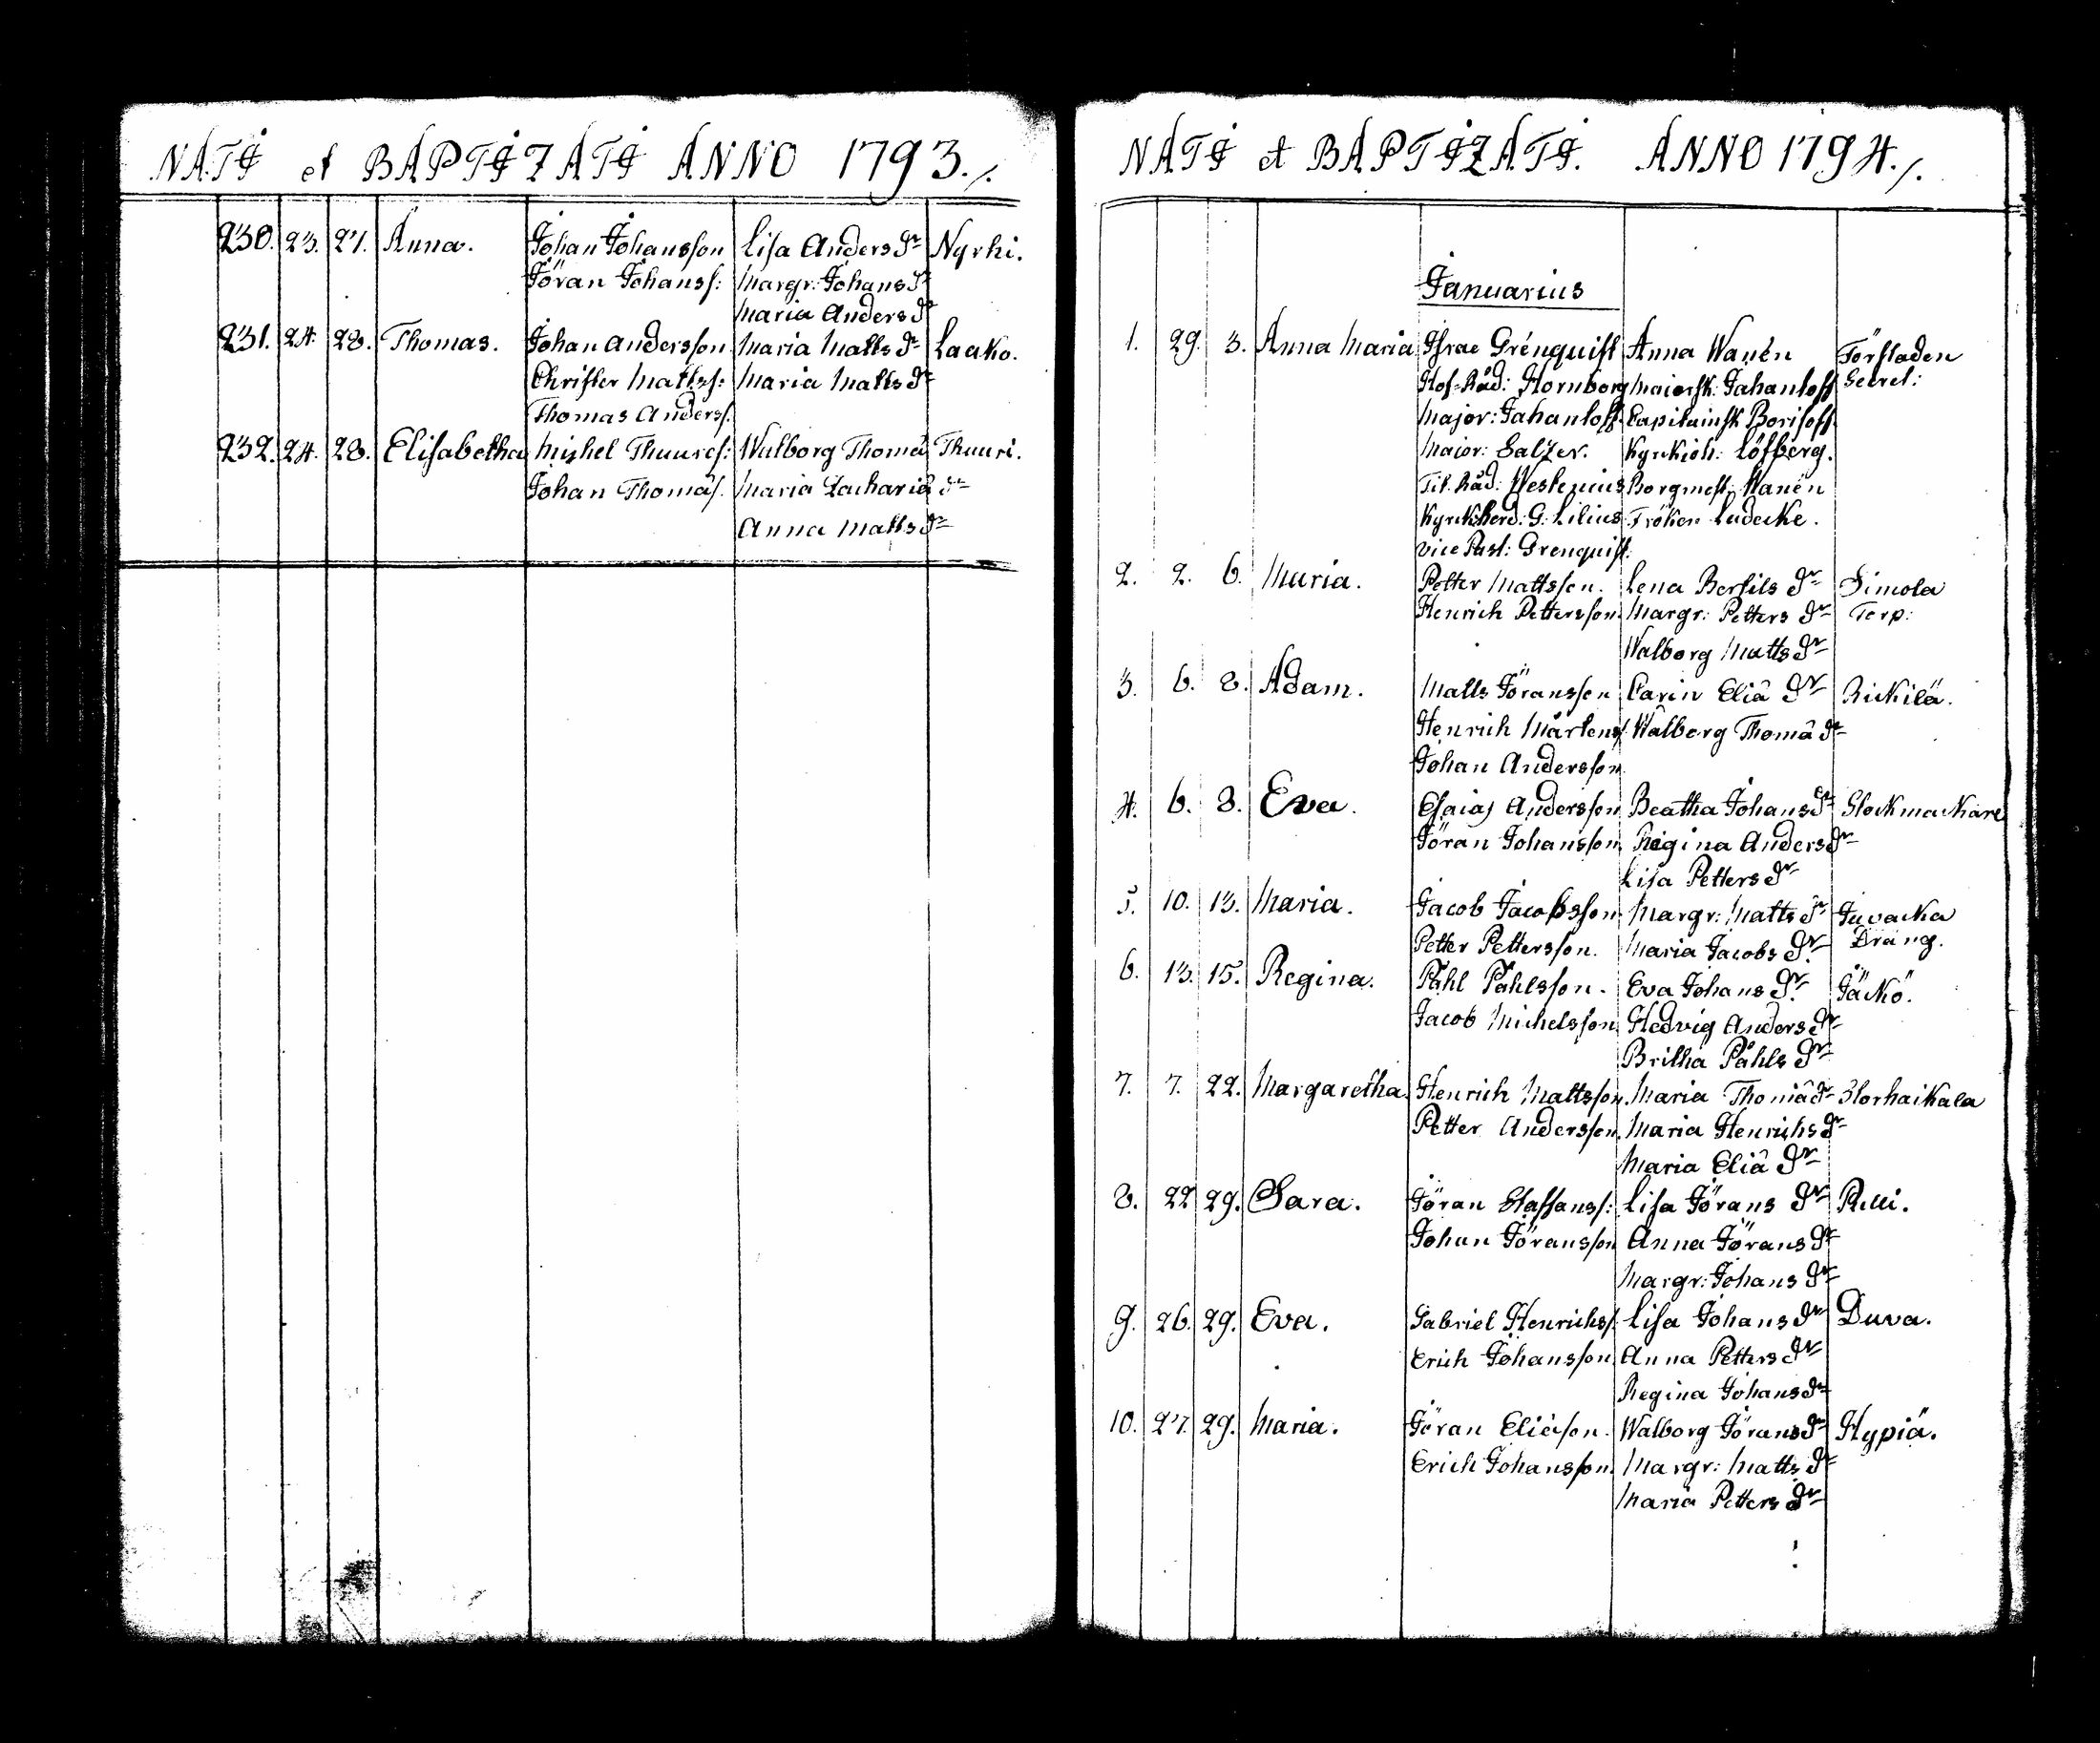 NATI et BAPTIZATI ANNO 1793./.
230. 23. 27. Anna. Johan Johansson Lisa Anders dr Nyrhi.
Jöran Johanss: Margr: Johans dr
Maria Anders dr
231. 24. 28. Thomas. Johan Andersson Maria Matts dr Laako.
Christer Mattss: Maria Matts dr
Thomas Anderss.
232. 24. 28. Elisabetha Michel Thuures: Walborg Thomæ Thuuri.
Johan Thomæs. Maria Zachariæ dr
Anna Matts dr
NATI et BAPTIZATI. ANNO 1794./.
Januarius
1. 29. 3. Anna Maria Israe Grénquist Anna Wanèn Förstaden
Hof-Råd: Hornborg Maiorsk: Jahantoff Secret:
Major: Jahantoff Capitainsk Borisoff
Maior: Salzer. Kyrckioh: Löfberg.
Tit. Råd: Weslenius Borgmest: Wanèn
Kyrckherd: G: Lilius Fröken Ludecke.
vice Past: Grenquist.
2. 2. 6. Maria. Petter Mattsson. Lena Bertils dr Simola
Henrich Pettersson. Margr: Petters dr Torp:
Walborg Matts dr
3. 6. 8. Adam. Matts Jöransson Carin Eliæ dr Rickilä.
Henrich Mårtens. Walborg Thomæ dr
Johan Andersson
4. 6. 8. Eva. Esaias Andersson Beatha Johans dr Glockmackare
Jöran Johansson Regina Anders dr
Lisa Petters dr
5. 10. 13. Maria. Jacob Jacobsson Margr: Matts dr Juvacka
Petter Pettersson. Maria Jacobs dr. Dräng.
6. 13. 15. Regina. Påhl Påhlsson. Eva Johans dr. Jäckö.
Jacob Michelsson Hedvig Anders dr
Britha Påhls dr
7. 7. 22. Margaretha. Henrich Mattsson. Maria Thomæ dr Storhaikala
Petter Andersson. Maria Henrichs dr
Maria Eliæ dr
8. 22 29. Sara. Jöran Staffanss: Lisa Jörans dr
Johan Jöransson Anna Jörans dr
Margr: Johans dr
9. 26. 29. Eva. Gabriel Henrichss. Lisa Johans dr Duva.
Erich Johansson. Anna Petters dr
Regina Johans dr
10. 27. 29. Maria. Jöran Eliæson. Walborg Jörans dr Hypiä.
Erich Johansson. Margr: Matts dr
Maria Petters dr